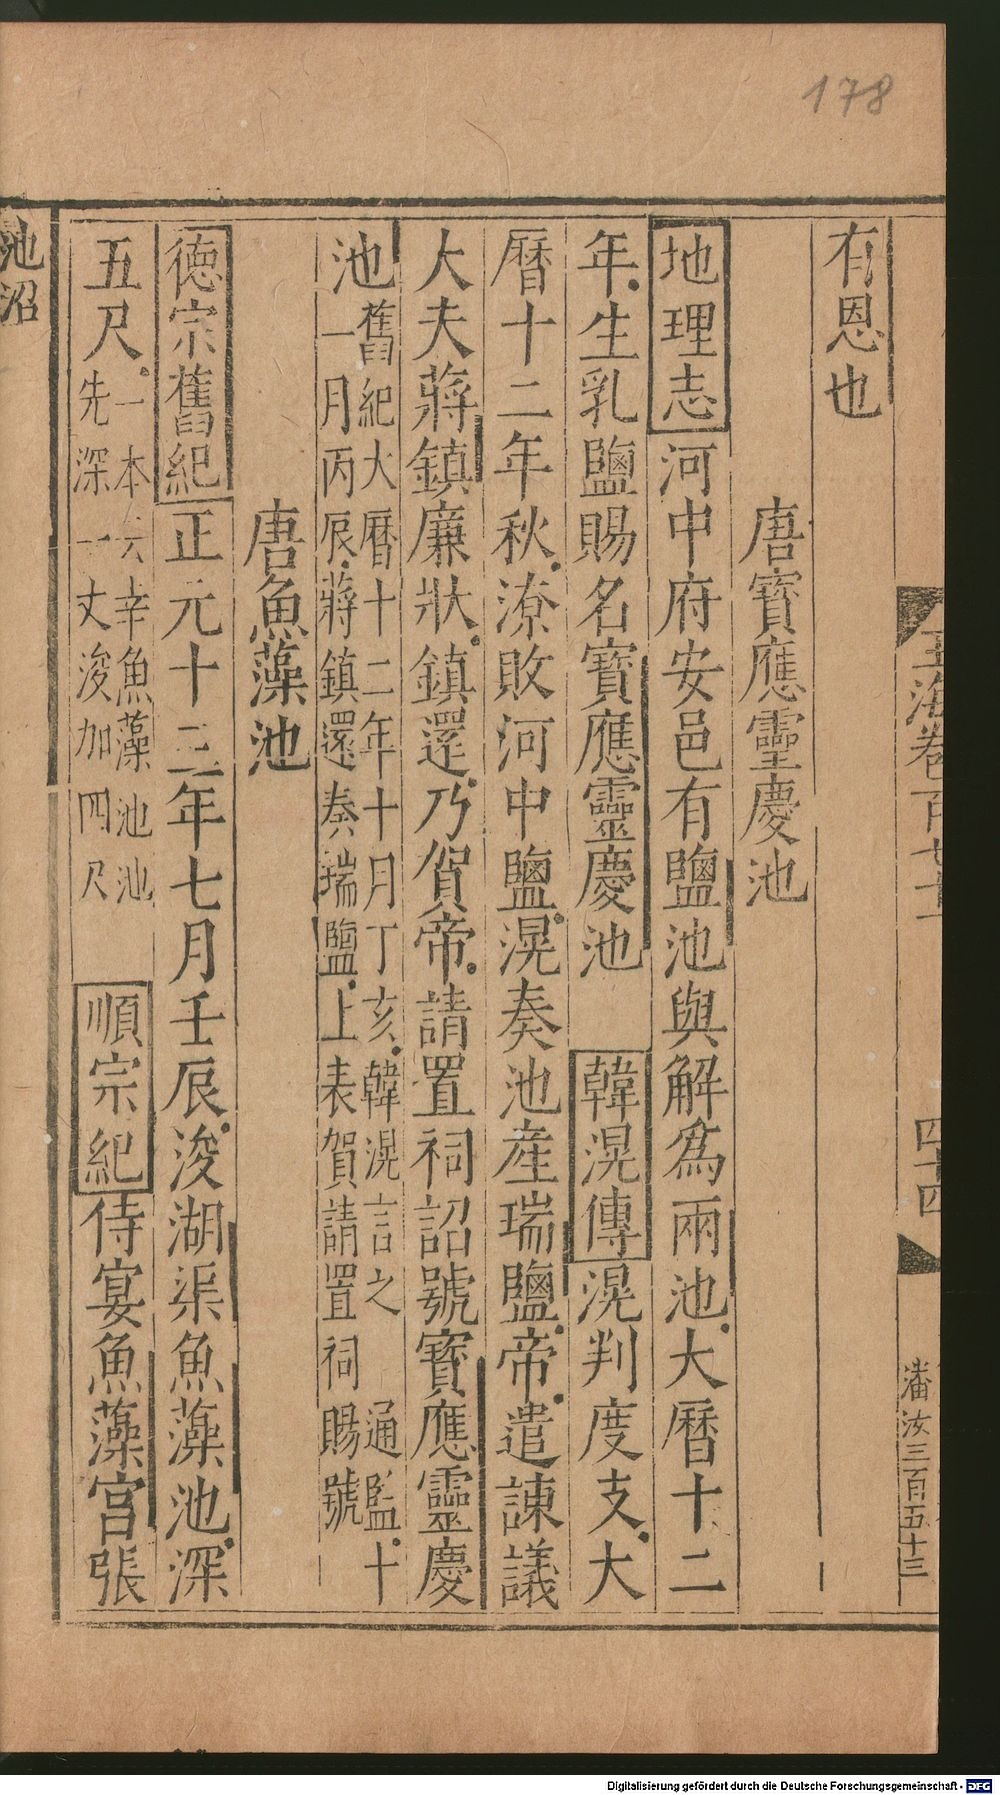 178
玉海卷百七十一
四十四
潘汝三百五十三
有恩也
唐寳應靈慶池
地理志河中府安邑有鹽池與解爲兩池大曆十二
年生乳鹽賜名寳應靈慶池 韓滉傳滉判度支大
曆十二年秋潦敗河中鹽滉奏池産瑞鹽帝遣諫議
大夫蔣鎮廉狀鎮還乃賀帝請置祠詔號寳應靈慶
池舊紀大曆十二年十月丁亥韓滉言之 通監十
一月丙辰蔣鎮還奏瑞鹽上表賀請置祠賜號
唐魚藻池
德宗舊紀正元十三年七月壬辰浚湖渠魚藻池深
五尺一本云幸魚藻池池
先深一丈浚加四尺 順宗紀侍宴魚藻宫張
池沼
Digitalisierung gefördert durch die Deutsche Forschungsgemeinschaft - DFG